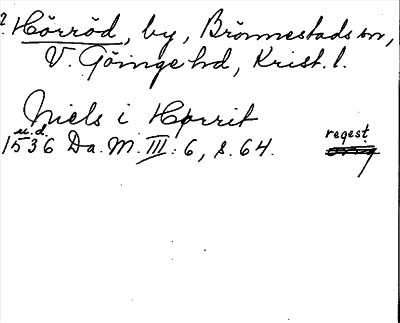 ? Hörröd, by, Brönnestads sn,
V. Göinge hd, Krist. l.
Niels i Horrit
u.d.
1536 Da. M. III: 6, s. 64.
regest
orig